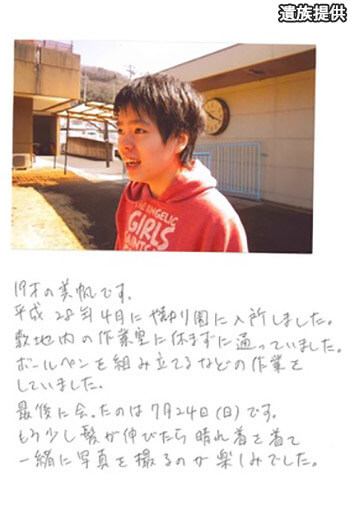 遺族提供
THE ANGELIC
GIRLS
19才の美帆です。
平成28年4月にやまゆり園に入所しました。
敷地内の作業室に休まずに通っていました。
ボールペンを組み立てるなどの作業を
していました。
最後に会ったのは7月24日(日)です。
もう少し髪が伸びたら晴れ着を着て
一緒に写真を撮るのが楽しみでした。